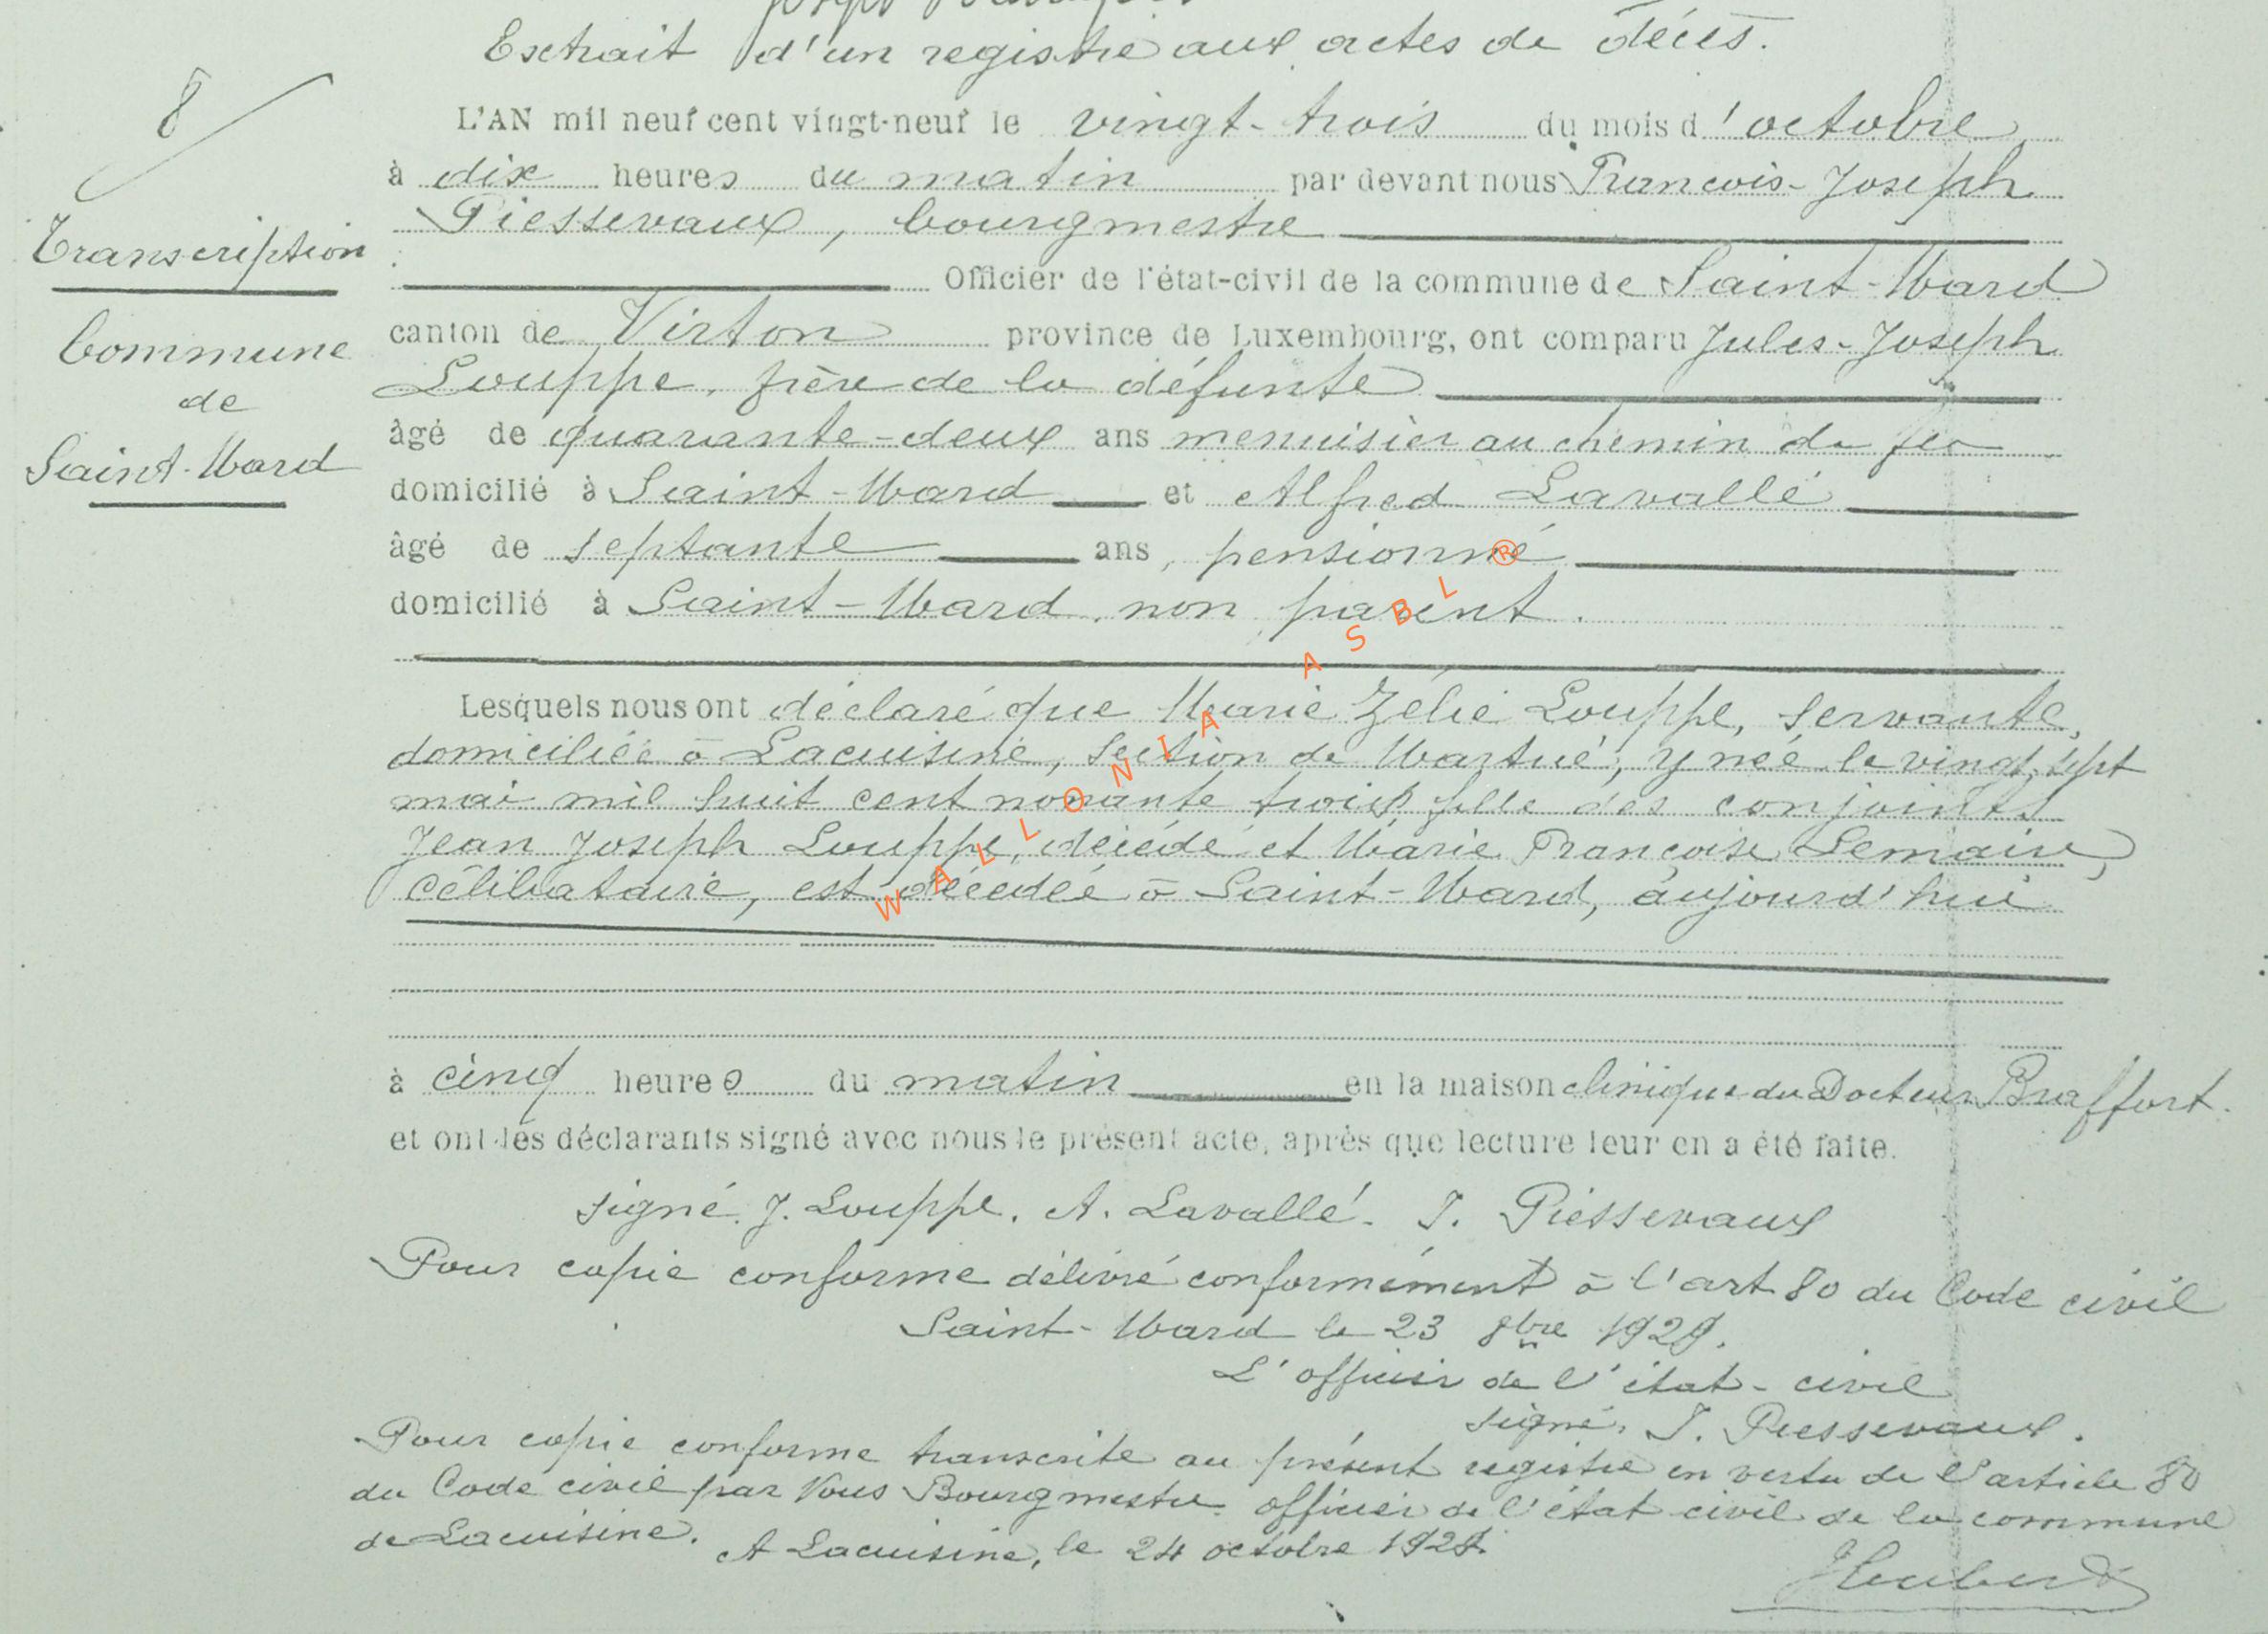 Extrait d'un registre aux actes de décès.
8
L'AN mil neuf cent vingt-neuf le vingt-trois du mois d'octobre
à dix heures du matin par devant nous Francois-Joseph
Piessevaux, bourgmestre
Transcription
Officier de l'état-civil de la commune de Saint-Mard
Commune
de
Saint-Mard
canton de Virton province de Luxembourg, ont comparu Jules-Joseph
Louppe, frère de la défunte
âgé de quarante-deux ans menuisier au chemin de fer
domicilié à Saint-Mard et Alfred Lavallé
âgé de septante ans, pensionné
domicilié à Saint-Mard, non parent.
Lesquels nous ont déclaré que Marie Zélie Louppe, servante,
domiciliée à Lacuisine, section de Martué, y née le vingt-sept
mai mil huit cent nonante trois fille des conjoints
Jean Joseph Louppe, décédé et Marie Françoise Lemaire,
célibataire, est décédée à Saint-Mard, aujourd'hui
WALLONIA ASBL ®
à cinq heures du matin en la maison clinique du Docteur Braffort.
et ont les déclarants signé avec nous le présent acte, après que lecture leur en a été faite.
signé. J. Louppe. A. Lavallé. J. Piessevaux
Pour copie conforme délivré conformément à l'art 80 du Code civil
Saint-Mard le 23 8bre 1929.
L'officier de l'état-civil
signé. J. Piessevaux.
Pour copie conforme transcrite au présent registre en vertu de l'article 80
du Code civil par Nous Bourgmestre officier de l'état civil de la commune
de Lacuisine. A Lacuisine, le 24 octobre 1929.